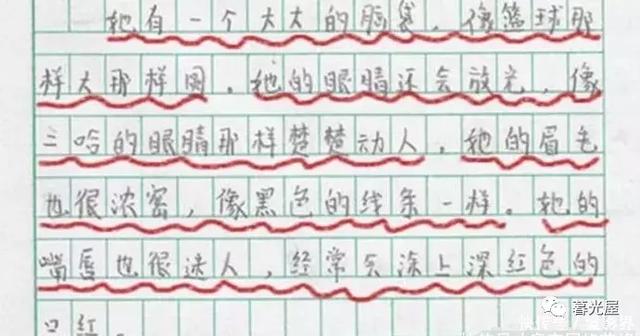 她有一个大大的脑袋，像篮球那
样大那样圆。她的眼睛还会放光，像
二哈的眼睛那样楚楚动人，她的眉毛
也很浓密，像黑色的线条一样。她的
嘴唇也很迷人，经常会涂上深红色的
口红。
暮光屋